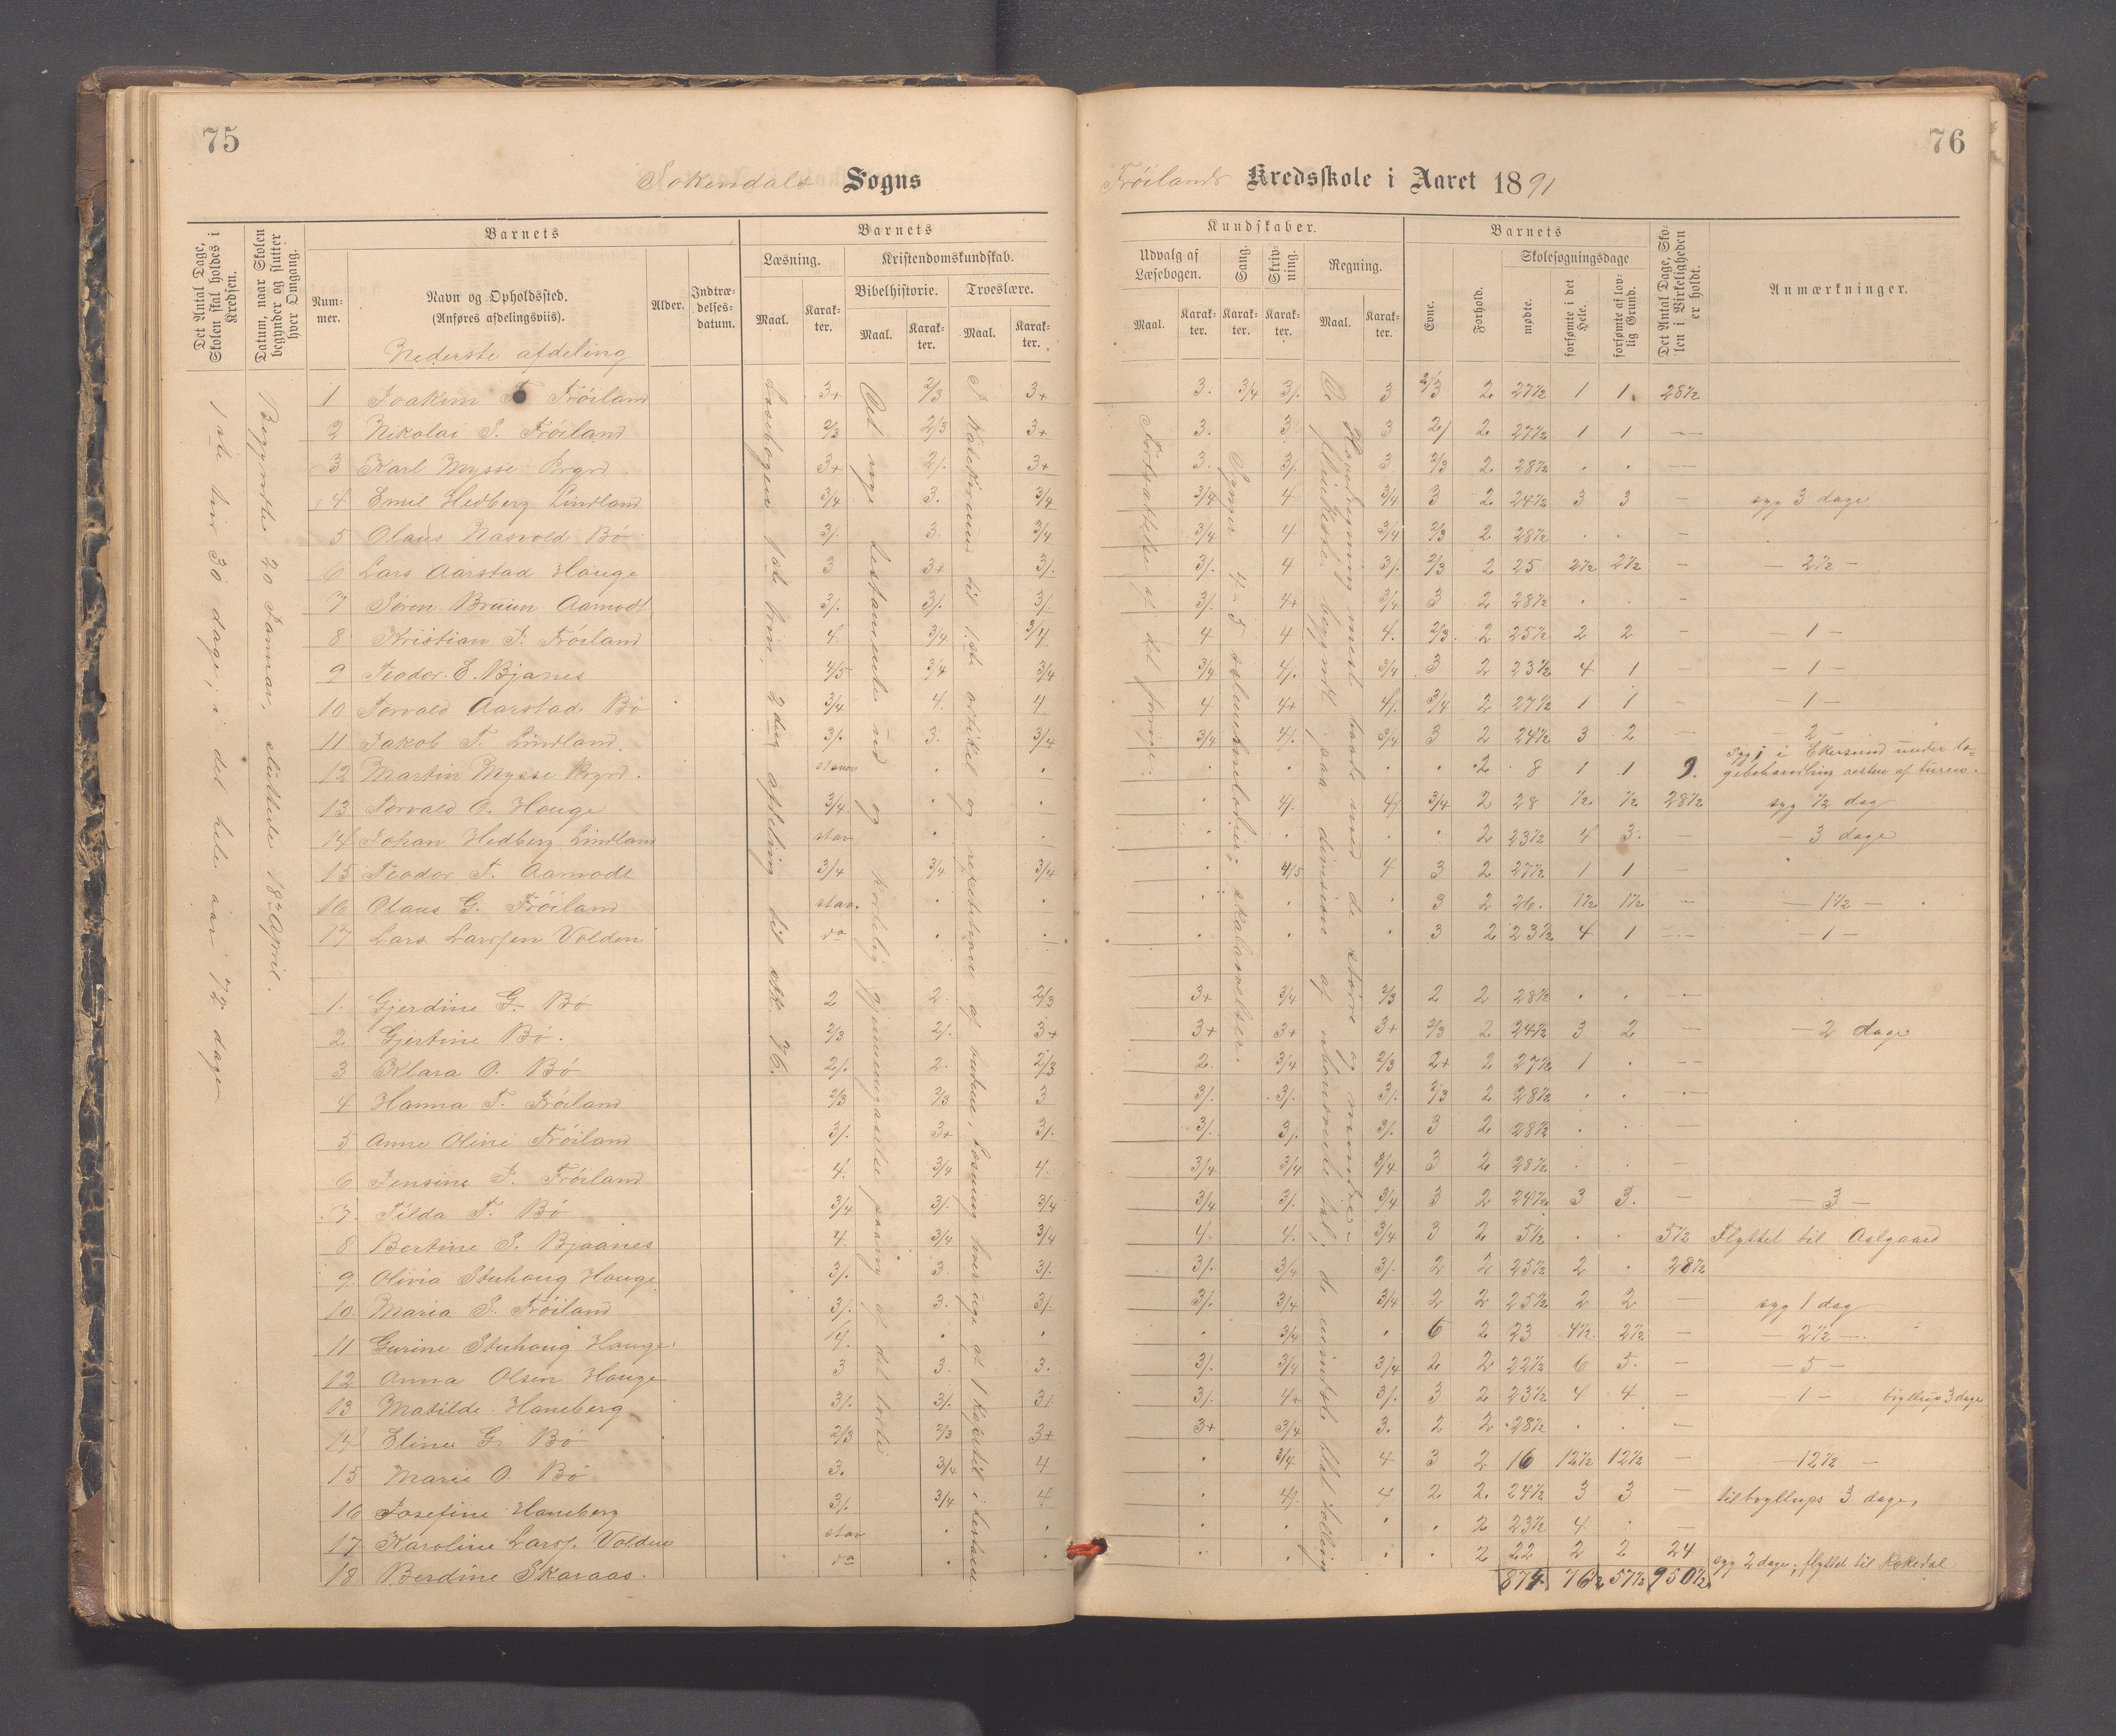 75
Sokendals Sogns
Det Antal Dage, Skolen skal holdes i Kredsen.
Datum, naar Skolen begynder og slutter hver Omgang.
Barnets
Nummer.
Navn og Opholdssted.
(Anføres afdelingsviis).
Nederste afdeling
Alder.
Indtrædelsesdatum.
Barnets
Læsning.
Kristendomskundskab.
Bibelhistorie.
Troeslære.
Maal.
Karakter.
Maal.
Karakter.
Maal.
Karakter.
1ste tur 30 dage; i det hele aar 72 dage
Begyndte 20 Januar, sluttede 18de April.
Læsebogen 1ste trin, 2den afdeling til st. 76.
1 Joakim T. Fröiland 3+ 2/3 3+
2 Nikolai S. Fröiland 2/3 2/3 3+
3 Karl Mysse Brgrd. 3+ 2/. 3+
4 Emil Hedberg Lindland 3/4 3. 3/4
5 Olaus Nasvold Bö 3/. 3. 3/4
6 Lars Aarstad Hauge 3 3+ 3/.
7 Sören Bruun Aamodt 3/. 3/. 3/.
8 Kristian T. Fröiland 4. 3/4 3/4
9 Teodor E. Bjanes 4/5 3/4 3/4
10 Torvald Aarstad Bö 3/4 4. 4
11 Jakob T. Lindland. 3/. 3. 3/4
12 Martin Mysse Brgrd. staver
13 Torvald O. Hauge 3/4.
14 Johan Hedberg Lindland stav
15 Teodor T. Aamodt 3/4 3/4 3/4
16 Olaus G. Fröiland stav.
17 Lars Larssen Volden do
1. Gjerdine G. Bö 2 2. 2/3
2 Gjertine Bö. 2/3 2/. 3+
3 Klara O. Bö 2/. 2. 2/3
4 Hanna T. Fröiland 2/3 2/3 3
5 Anne Oline Fröiland 3/. 3+ 3/.
6 Jensine T. Fröiland 4. 3/4 4.
7. Tilda T. Bö 3/4 3/. 3/4
8 Bertine S. Bjaanes 4. 3/4 3/4
9. Olivia Stuhaug Hauge 3/. 3. 3/.
10. Maria S. Fröiland 3/. 3. 3/.
11 Gurine Stuhaug Hauge 4.
12 Anna Olsen Hauge 3 3. 3.
13 Matilde Haneberg 3/. 3/. 3/.
14 Eline G. Bö 2/3 2/3 3+
15 Marie O. Bö 3. 3/4 4
16 Josefine Haneberg 3/. 3/4 4
17 Karoline Larss. Volden stav
18 Berdine Skaraas. do
76
Fröilands Kredsskole i Aaret 1891
Kundskaber.
Udvalg af Læsebogen.
Sang.
Skrivning.
Regning.
Maal.
Karakter.
Karakter.
Karakter.
Maal.
Karakter.
Barnets
Evne.
Forhold.
Skolesøgningsdage
mødte.
forsømte i det Hele.
forsømte af lovlig Grund.
Det Antal Dage, Skolen i Virkeligheden er holdt.
Anmærkninger.
Fortsættelse af det forrige.
3. 3/4 3/. 3 2/3 2 27½ 1 1. 28½
3. 3/. 3 2/ 2 27½ 1 1 —
3. 3/. 3 2/3 2. 28½ . . —
3/4 4 3/4 3 2 24½ 3 3 — syg 3 dage
3/4 4 3/4 2/3 2 28½ . . —
3/. 4 3/. 2/3 2 25 2½ 2½ — — 2½ —
3/. 4+ 3/4 3 2 28½ . . —
4 4 4. 2/3. 2 25½ 2 2 — — 1 —
3/4 4/. 3/4 3 2 23½ 4 1 — — 1 —
4 4+ 4/. 3/4 2 27½ 1 1 — — 1 —
3/4 4/. 3/4 3 2 24½ 3 2 — — 2 —
. . . . 2 8 1 1 9. syg, i Ekersund under lægebehandling resten af turen.
. 4/. 4/ 3/4 2 28 ½ ½ 28½ syg ½ dag
. . . . 2 23½ 4 3. — — 3 dage
. 4/5 4 3 2 27½ 1 1 —
. . . 3 2 26. 1½ 1½ — — 1½ —
. . . 3 2 23½ 4 1 — — 1 —
3+ 3/4 2/3 2 2 28½ . . —
3+ 3+ 3+ 2/3 2 24½ 3 2 — — 2 dage
2. 3/4 2/3 2+ 2 27½ 1 . —
3/. 3/. 3/. 2/3 2 28½ . . —
3/. 3/. 3/. 3 2 28½ . . —
3/4 3/4 3/4 3 2 28½ . . —
3/4 3/. 3/4 3 2 24½ 3 3. — — 3 —
4. 4. 3/4 3 2 5½ . . 5½ Flyttet til Aalgaard
3/. 3/4 3/. 2 2 25½ 2 . 28½
3/. 3/4 3/4 2 2 25½ 2 2 — syg 1 dag
. 3/4 . 6 2 23 4½ 2½ — — 2½ —
3/. 3/4 3/4 2 2 22½ 6 5. — — 5 —
3/. 4+ 3/. 3 2 23½ 4 4 — — 1 — bryllup 3 dage
3+ 3/4 3. 2 2 28½ . . —
. 3/4 4 3 2 16 12½ 12½ — — 12½ —
. 4/. 4 2 2. 24½ 3 3 — til bryllups 3 dage,
. . . . 2 23½ 4 . —
. . . . 2 22 2 2 24 syg 2 dage; flyttet til Kokedal
874. 76½ 57½ 950½